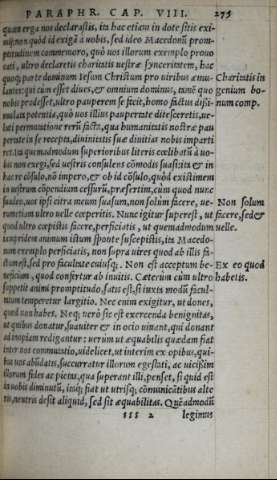 PARAPHR. CAP. VIII. 275
quam erga nos declarastis, in hac etiam in dote sitis exi-
mij: non quòd id exigā a vobis, sed ideo Macedonū prom-
ptitudinem commemoro, quò vos illorum exemplo provo
cati, ultro declaretis charitatis vestræ synceritatem, hac
quoq; parte dominum Iesum Christum pro viribus æmu-
lantes: qui cùm esset dives, & omnium dominus, tamē quo Charitatis in
nobis prodesset, ultro pauperem se fecit, homo factus dissi- genium bo-
mulata potentia, quò vos illius paupertate ditesceretis, ve- num comp.
luti permutatione rerū facta, qua humanitatis nostræ pau
pertate in se recepta, divinitatis suæ divitias nobis imparti
ret. Ita quemadmodum superioribus literis cœlibatū à vo-
bis non exegi, sed vestris consulens cōmodis suasi: ita & in
hac re cōsulo, nō impero, & ob id cōsulo, quòd existimem
in vestrum cōpendium cessurū, præsertim, cùm quod nunc
suadeo, vos ipsi citra meum suasum, non solùm facere, ve- Non solum
rumetiam ultro velle cœperitis. Nunc igitur superest, ut facere, sed &
quod ultro cœpistis facere, perficiatis, ut quemadmodum velle.
iampridem animum istum sponte suscepistis, ita Macedo-
num exemplo perficiatis, non supra vires quod ab illis fa-
ctum est, sed pro facultate cuiusq;. Non est acceptum be- Ex eo quod
neficium, quod confertur ab invitis. Cæterùm cùm ultro habetis.
suppetit animi promptitudo, satis est, si iuxta modū facul-
tatum temperetur largitio. Nec enim exigitur, ut dones,
quod non habes. Neq; verò sic est exercenda benignitas,
ut quibus donatur, suaviter & in ocio vivant, qui donant
ad inopiam redigantur: verùm ut æquabilis quædam fiat
inter vos communicatio, videlicet, ut interim ex opibus, qui-
bus vos abūdatis, succurratur illorum egestati, ac vicissim
illorum fides ac pietas, qua superant illi, penset, si quid est
in vobis diminutū, inq; fiat ut utrisq; cōmunicātibus alte
ris, neutris desit aliquid, sed sit æquabilitas. Quēadmodū
sss 2 legimus